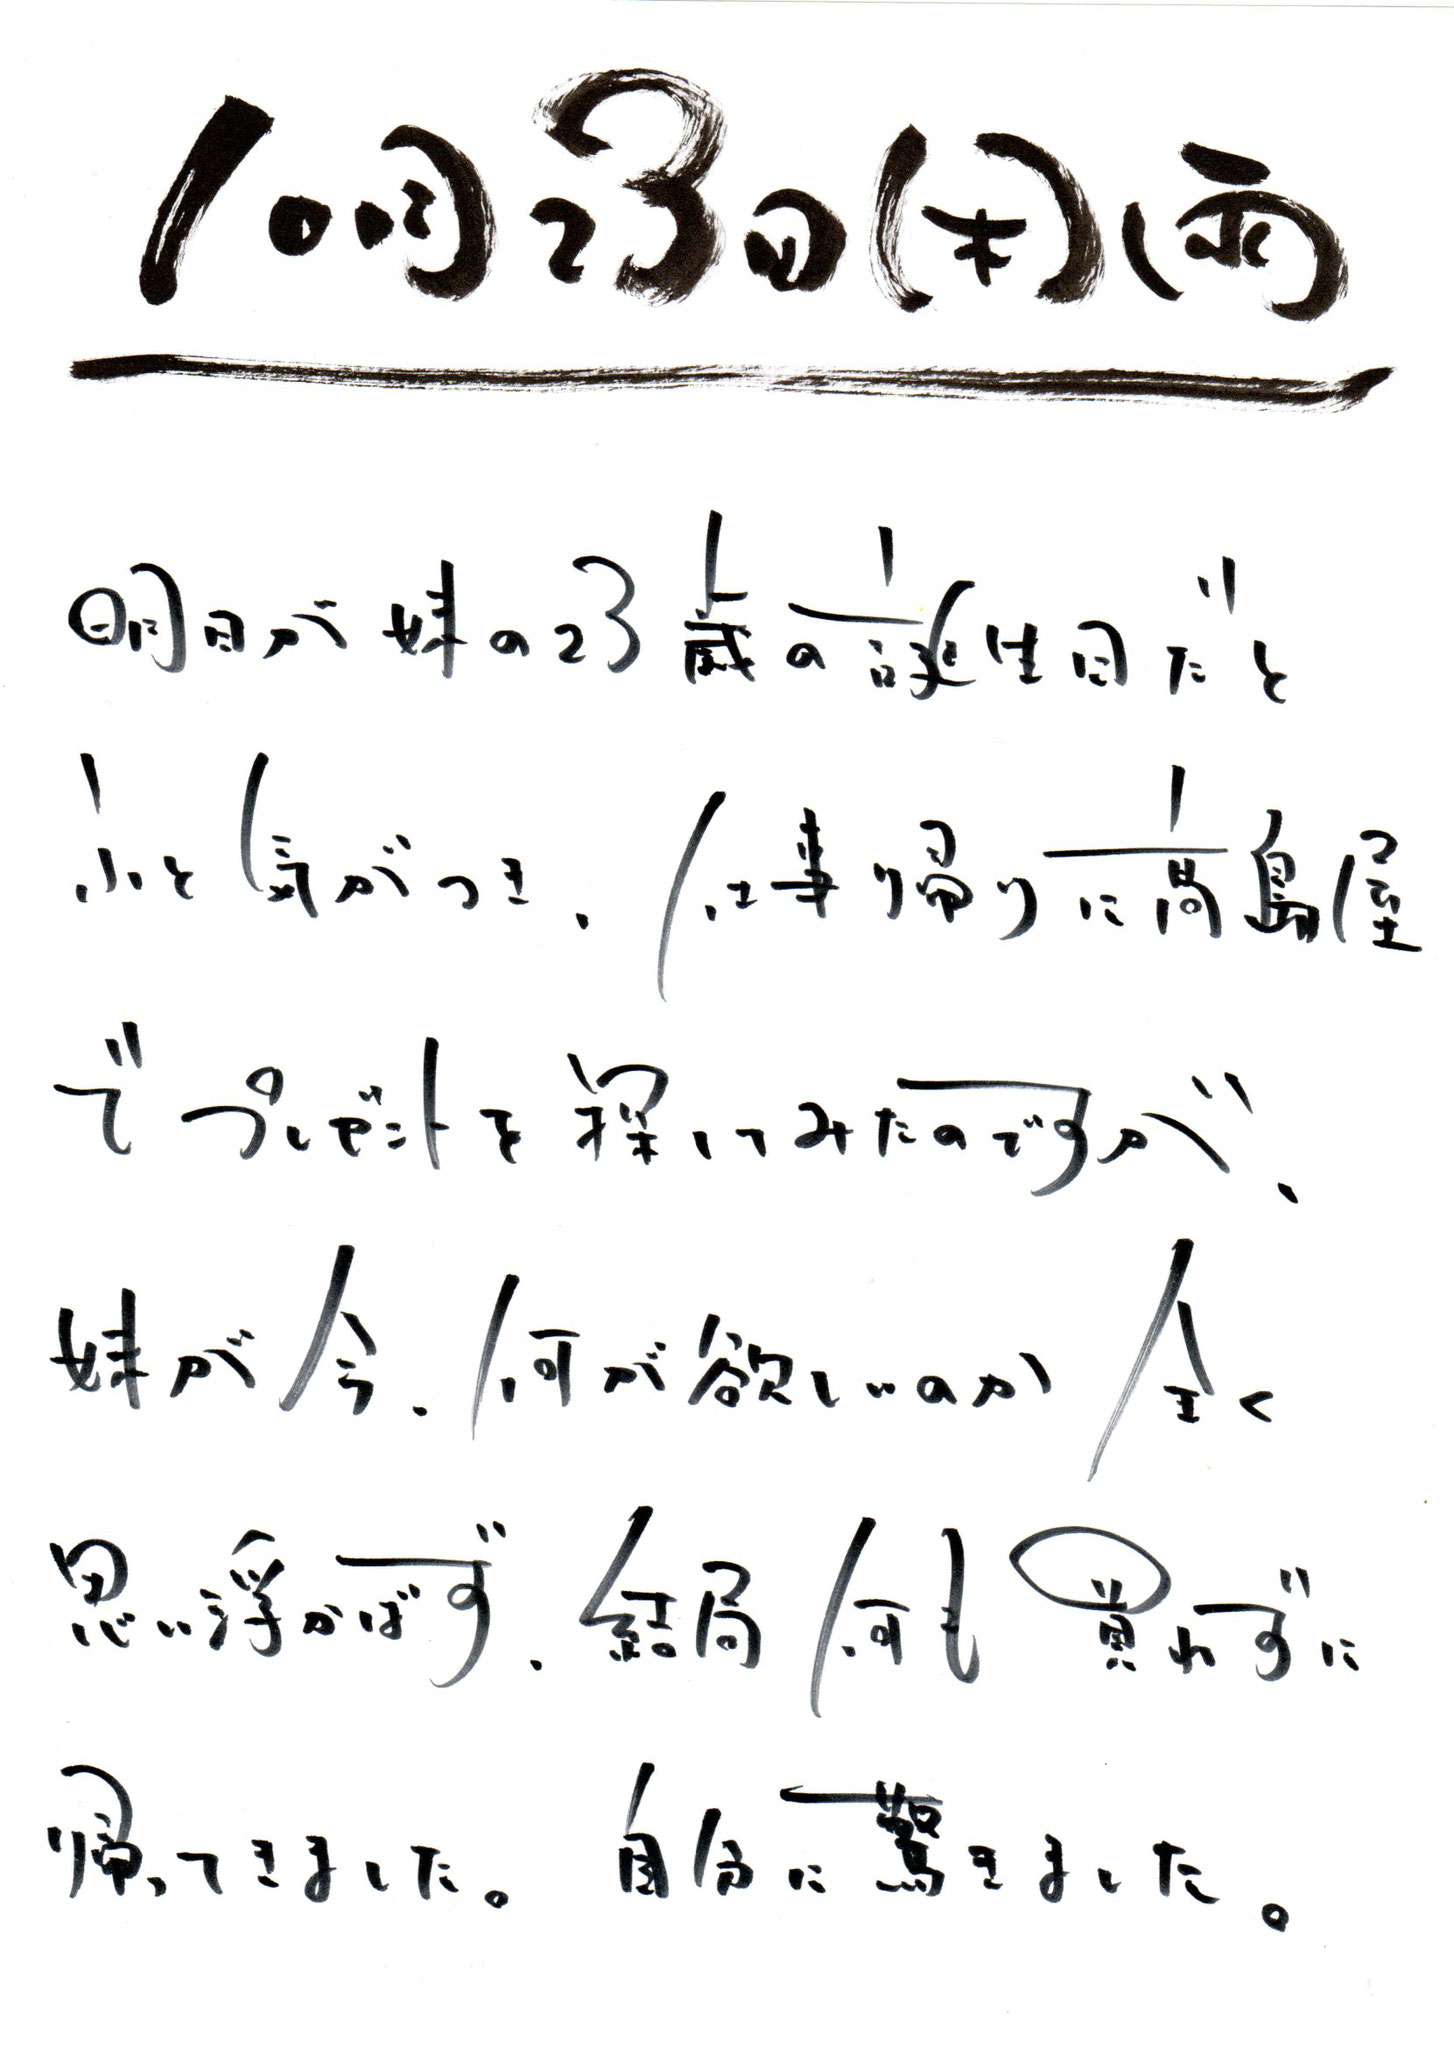 10月23日(木)(雨)
明日が妹の23歳の誕生日だと
ふと気がつき、仕事帰りに高島屋
でプレゼントを探してみたのですが、
妹が今、何が欲しいのか全く
思い浮かばず、結局何も買れずに
帰ってきました。自分に驚きました。